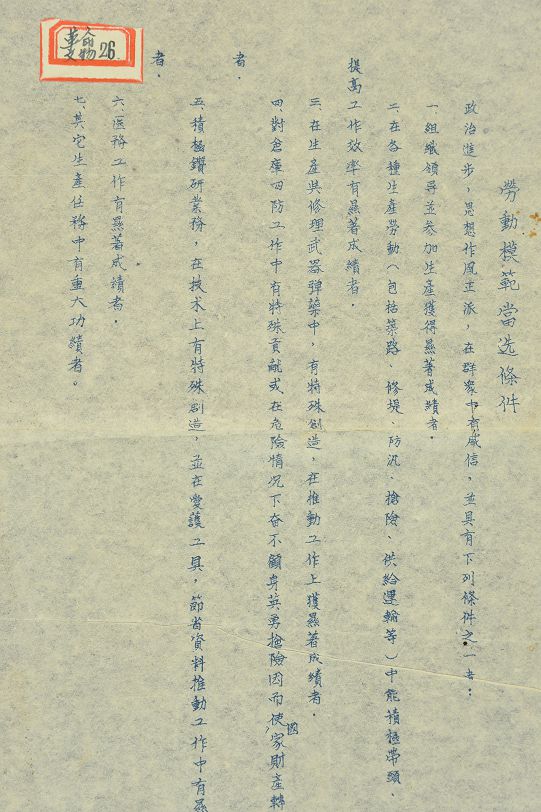 勞動模範當选條件
政治進步，思想作風正派，在群衆中有威信，並具有下列條件之一者：
一、組織領导並参加生產獲得顯著成績者．
二、在各種生產勞動（包括築路、修堤、防汛、搶險、供給運輸等）中能積極帶頭、
提高工作效率有顯著成績者．
三、在生產與修理武器彈藥中，有特殊創造，在推動工作上獲顯著成績者．
四、對倉庫四防工作中有特殊貢献或在危險情况下奋不顧身英勇搶險因而使國家財產轉
者．
五、積極鑽研業務，在技术上有特殊創造，並在愛護工具，節省資料推動工作中有顯
者．
六、医務工作有顯著成績者．
七、其它生產任務中有重大功績者。
26